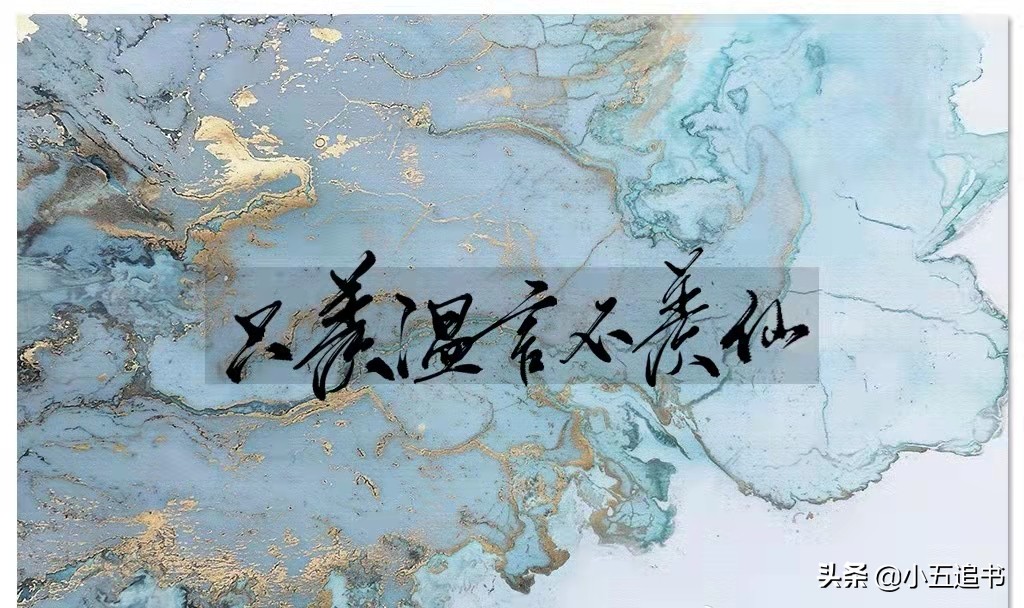 只羡温言不羡仙
头条 @小五追书